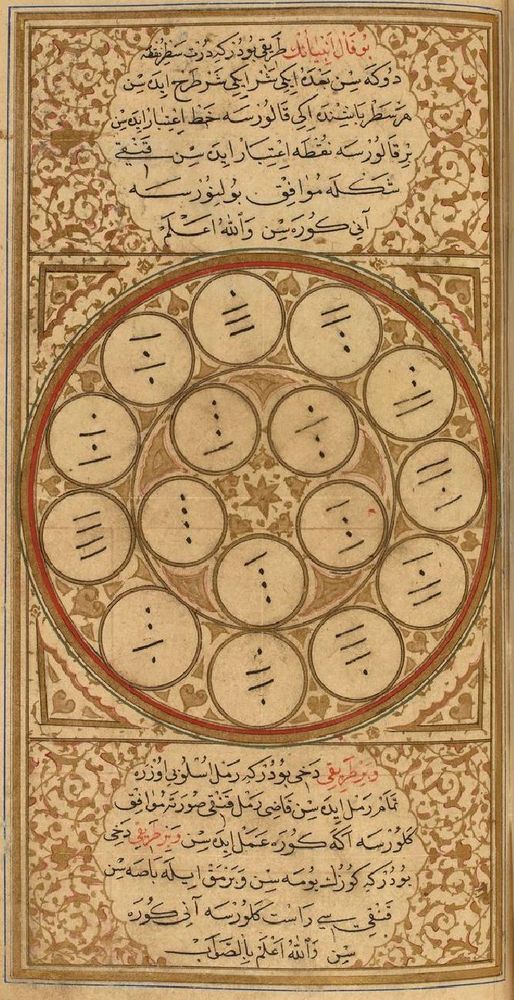 بو فال انبيانك طريقى بودركه درت سطر نقطه
دوكه سن بعده ايكى شر ايكى شر طرح ايده سن
هر سطر باشنده ايكى قالورسه خط اعتبار ايده سن
بر قالورسه نقطه اعتبار ايده سن قنقى
شكله موافق بولنورسه
آنى كوره سن والله اعلم
وبر طريقى دخى بودركه رمل اسلوبى اوزره
تمام رمل ايده سن قاضى رمل قنقى صورته موافق
كلورسه اكه كوره عمل ايده سن وبر طريقى دخى
بودركه كوزك يومه سن وبرمق ايله باصه سن
قنقى سى راست كلورسه آنى كوره
سن والله اعلم بالصواب